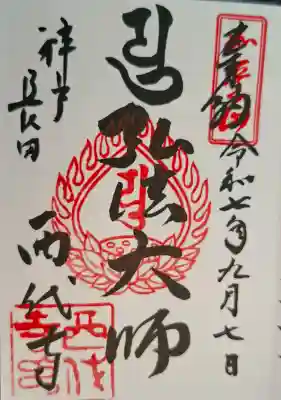 奉納 令和七年九月七日
弘法大師
神戸
長田
西代寺